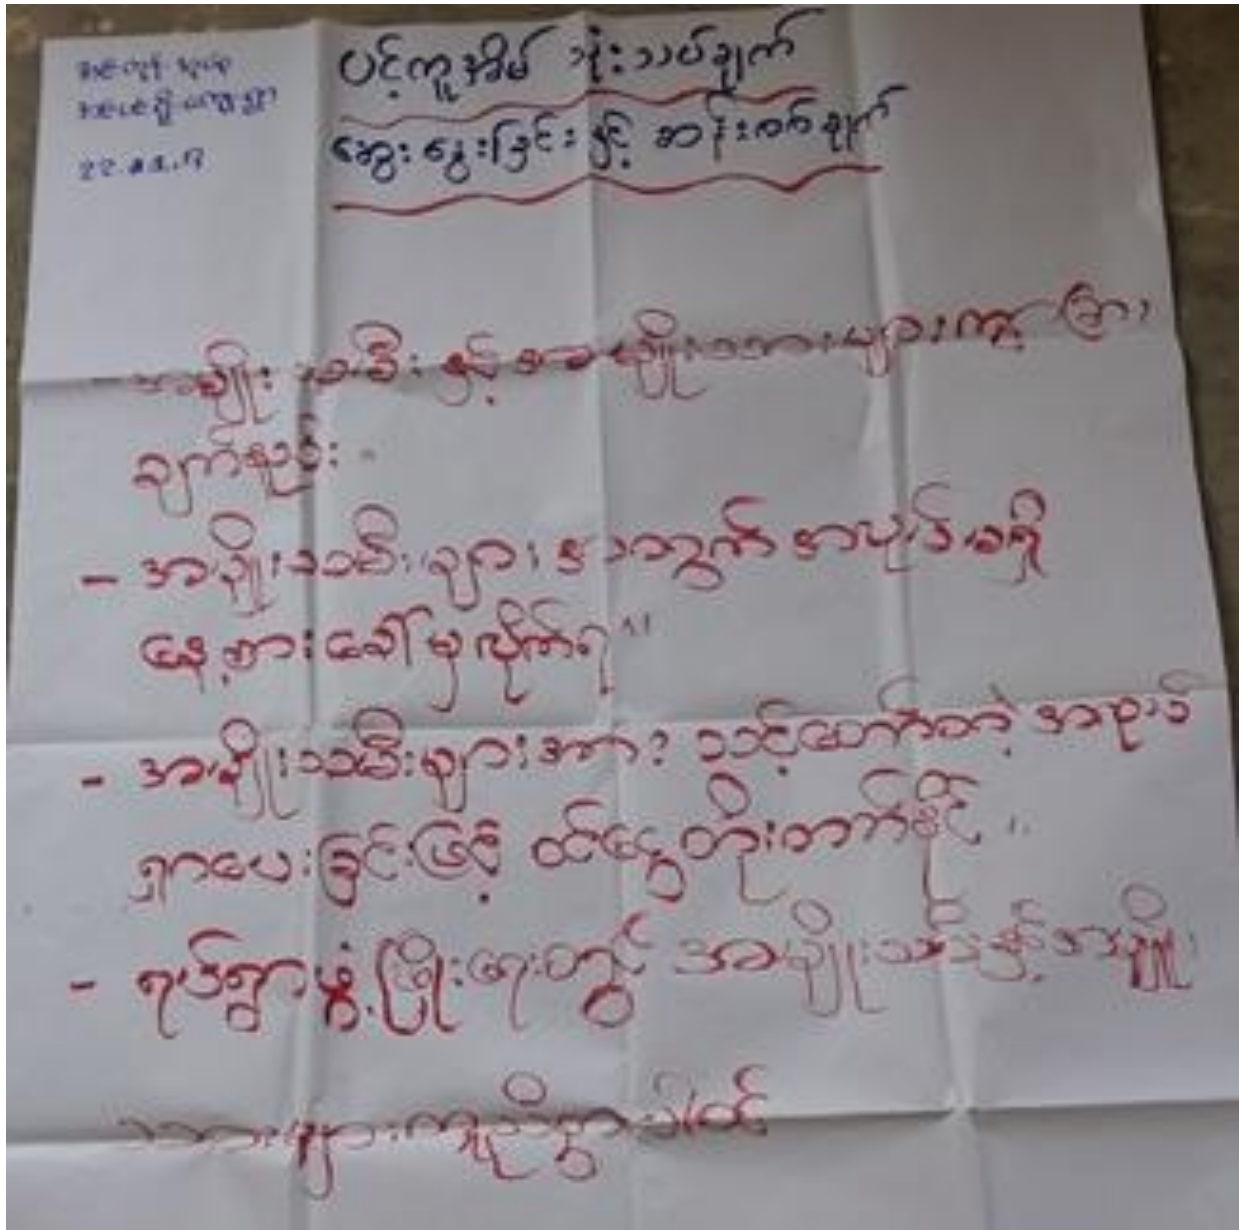 ၂၂.၁၁.၁၇
ပင့်ကူအိမ် သုံးသပ်ချက်
ဆွေးနွေးခြင်းနှင့် ဆန်းစစ်ချက်
အမျိုးသမီးနှင့် အမျိုးသားများကွာခြား
ချက်စည်း
- အမျိုးသမီးများအတွက် အလုပ်မရှိ
နေ့စားခေါ်မှလိုက်ရ"
- အမျိုးသမီးများအား သင့်တော်တဲ့ အလုပ်
ရှာပေးခြင်းဖြင့် ဝင်ငွေတိုးတက်နိုင်
- ရပ်ရွာဖွံ့ဖြိုးရေးတွင် အမျိုးသမီးနှင့်အမျိုး
သားများကူညီစွာပါဝင်